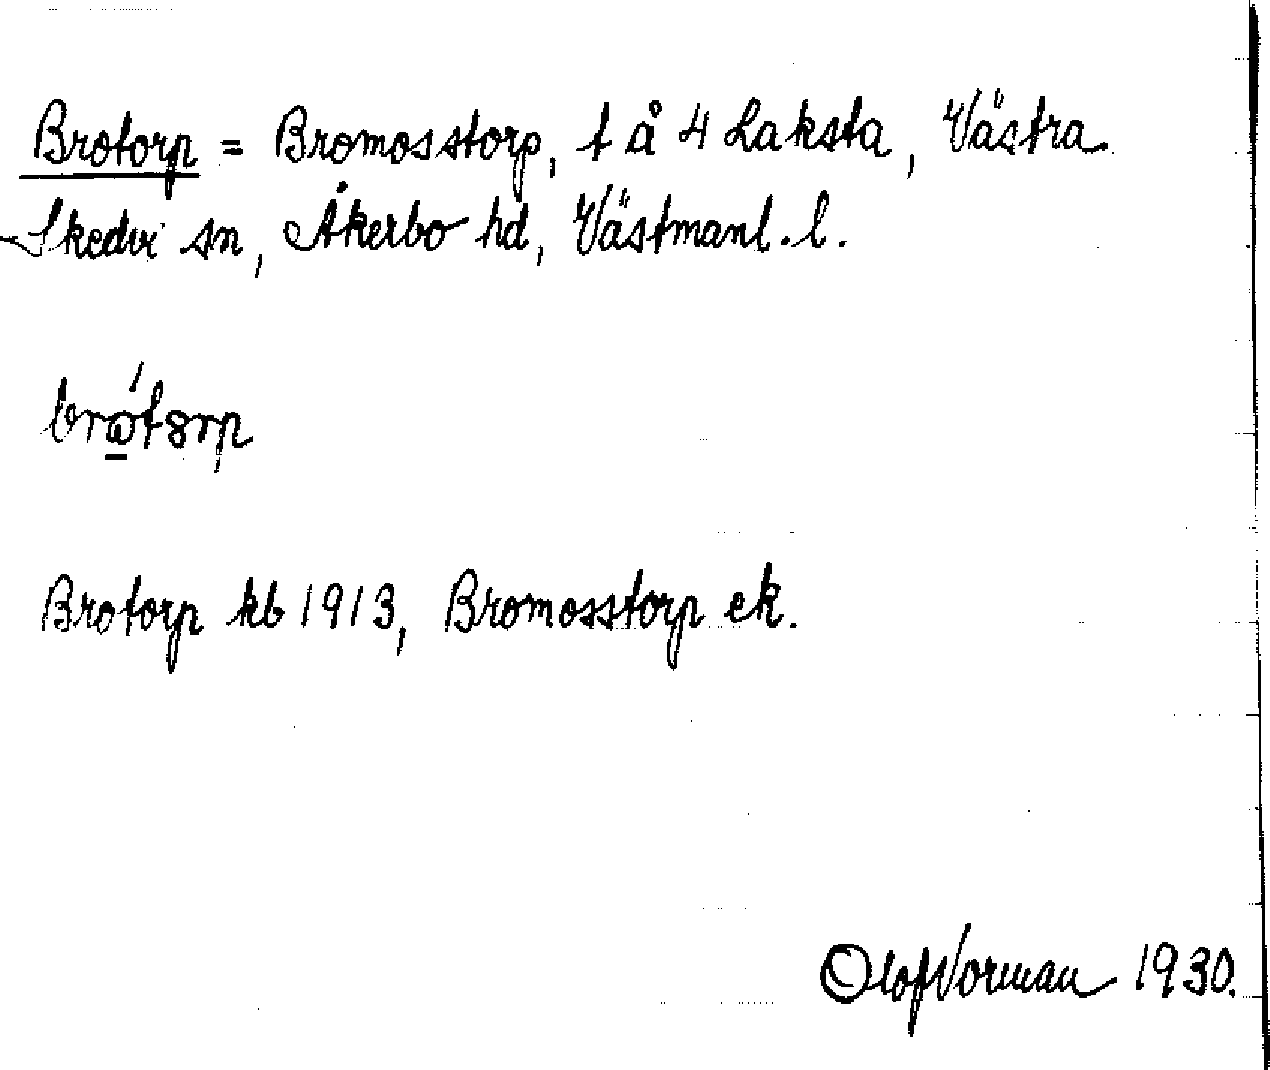 Brotorp = Bromosstorp, t å 4 Laksta, Västra
Skedvi sn, Åkerbo hd, Västmanl. l.
Brotorp kb 1913, Bromosstorp ek.
Olof Norman 1930.